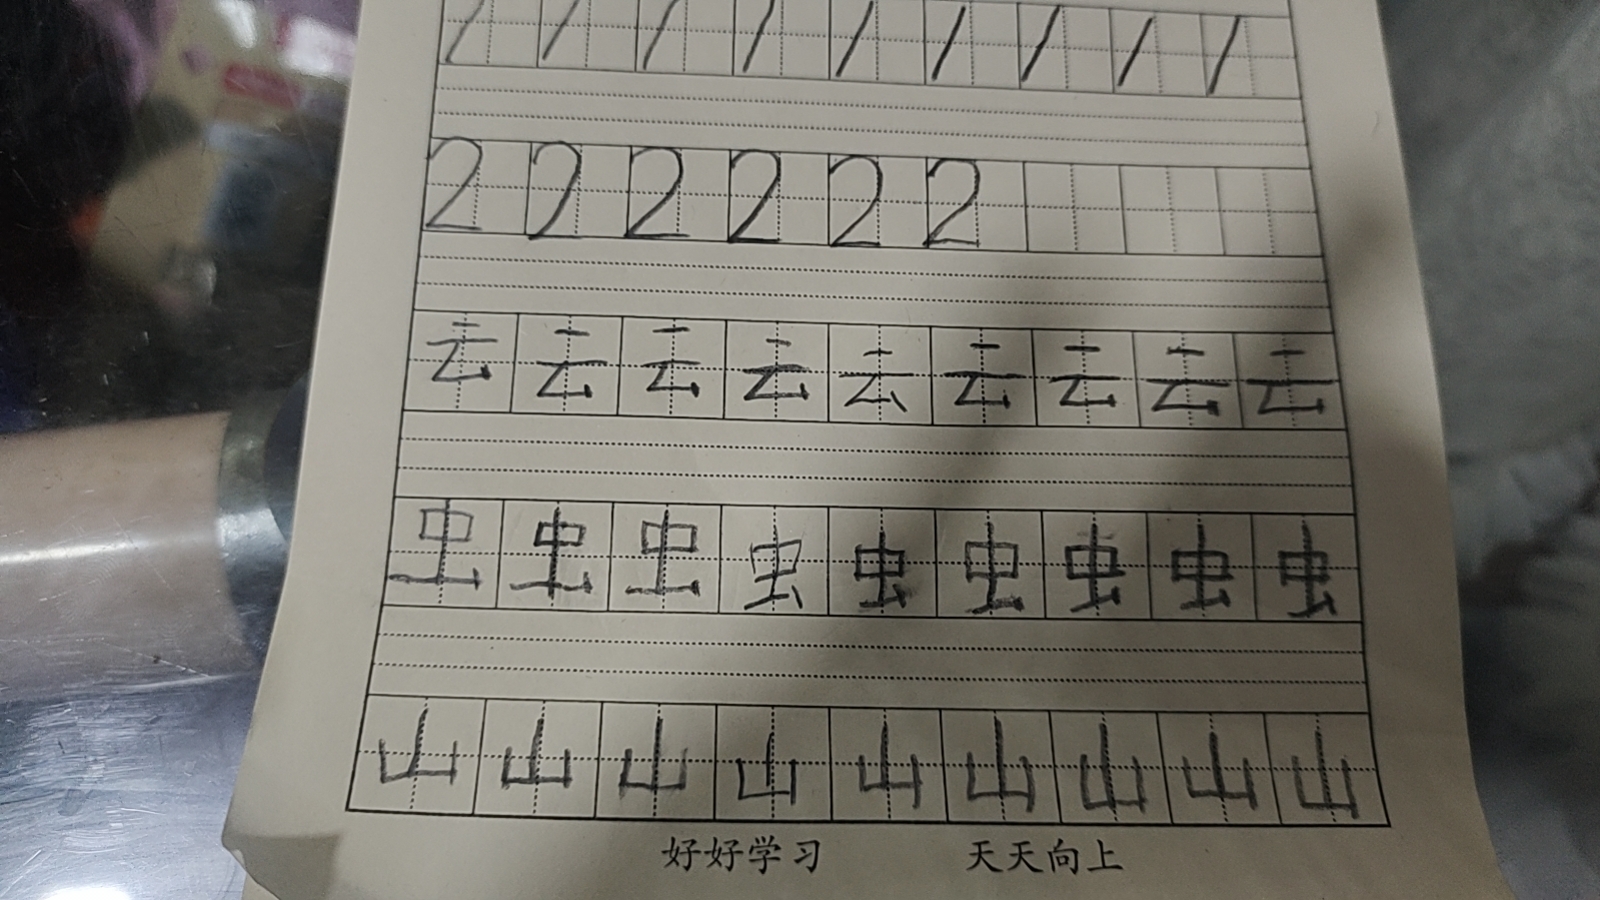 1 1 1 1 1 1 1 1 1
2 2 2 2 2 2
云 云 云 云 云 云 云 云 云
虫 虫 虫 虫 虫 虫 虫 虫 虫
山 山 山 山 山 山 山 山 山
好好学习 天天向上